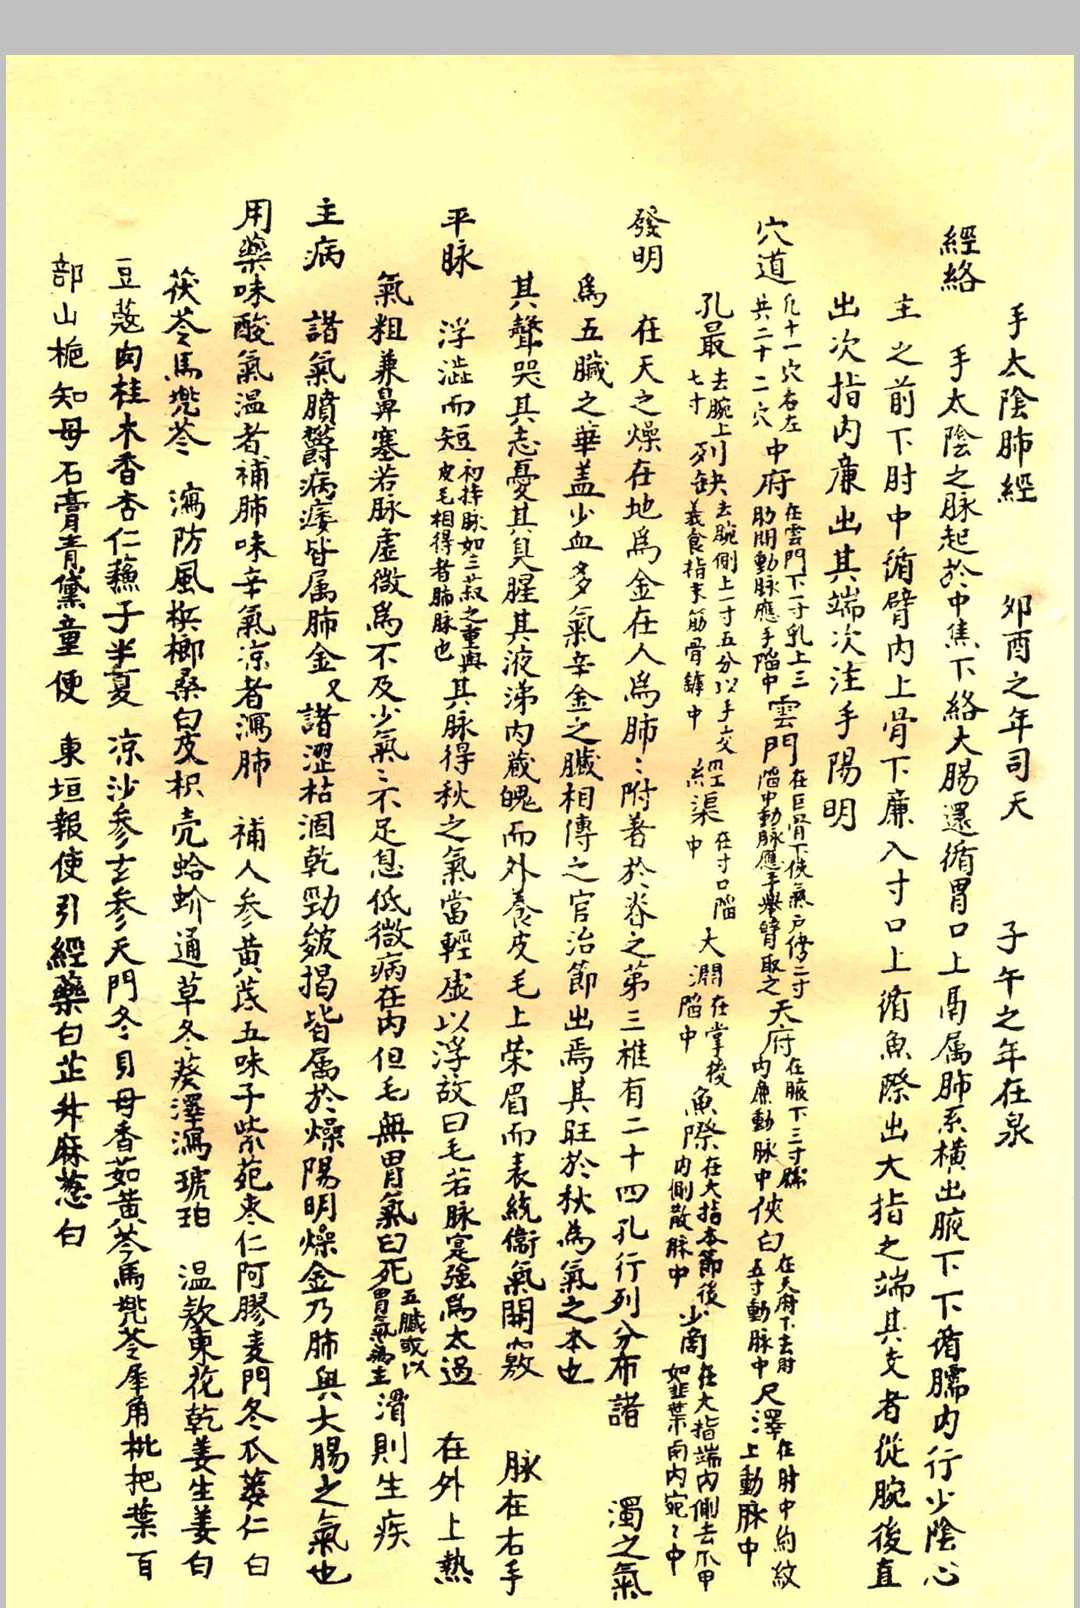 手太陰肺經 夘酉之年司天 子午之年在泉
經絡 手太陰之脉起於中焦下絡大腸還循胃口上鬲属肺系橫出腋下下循臑内行少陰心
主之前下肘中循臂内上骨下廉入寸口上循魚際出大指之端其支者從腕後直
出次指内廉出其端次注手陽明
穴道 凢十一穴右左共二十二穴 中府 在雲門下一寸乳上三肋間動脉應手陷中 雲門 在巨骨下侠氣户傍二寸陷中動脉應手舉臂取之 天府 在腋下三寸臑内廉動脉中 俠白 在天府下去肘五寸動脉中 尺澤 在肘中約紋上動脉中
孔最 去腕上七寸 列缺 去腕側上一寸五分以手交义食指末筋骨罅中 經渠 在寸口陷中 大淵 在掌後陷中 魚際 在大指本節後内側散脉中 少商 在大指端内側去爪甲如韭葉南内宛〻中
發明 在天之燥在地爲金在人爲肺〻附著於脊之苐三椎有二十四孔行列分布諸 濁之氣
爲五臓之華盖少血多氣辛金之臓相傳之官治節出焉其旺於秋為氣之本也
其聲哭其志憂其臭腥其液涕内藏魄而外養皮毛上荣眉而表統衞氣開竅 脉在右手
平脉 浮澁而短 初持脉如三菽之重與皮毛相得者肺脉也 其脉得秋之氣當輕虚以浮故曰毛若脉寔強爲太過 在外上熱
氣粗兼鼻塞若脉虚微爲不及少氣〻不足息低微病在内但毛無胃氣曰死 五臓或以胃氣為主 滑則生疾
主病 諸氣膹欝病痿皆属肺金又諸澀枯涸乾勁皴揭皆属於燥陽明燥金乃肺與大腸之氣也
用藥味酸氣温者補肺味辛氣凉者瀉肺 補人参黄芪五味子紫苑枣仁阿膠麦門冬瓜蒌仁白
茯苓馬兠苓 瀉防風梹榔桑白皮枳壳蛤蚧通草冬葵澤瀉琥珀 温欵東花乾姜生姜白
豆蔻肉桂木香杏仁蘓子半夏 凉沙参玄参天門冬貝母香茹黄芩馬兠苓犀角枇把葉百
部山栀知母石膏青黛童便 東垣報使引經藥白芷升麻葱白